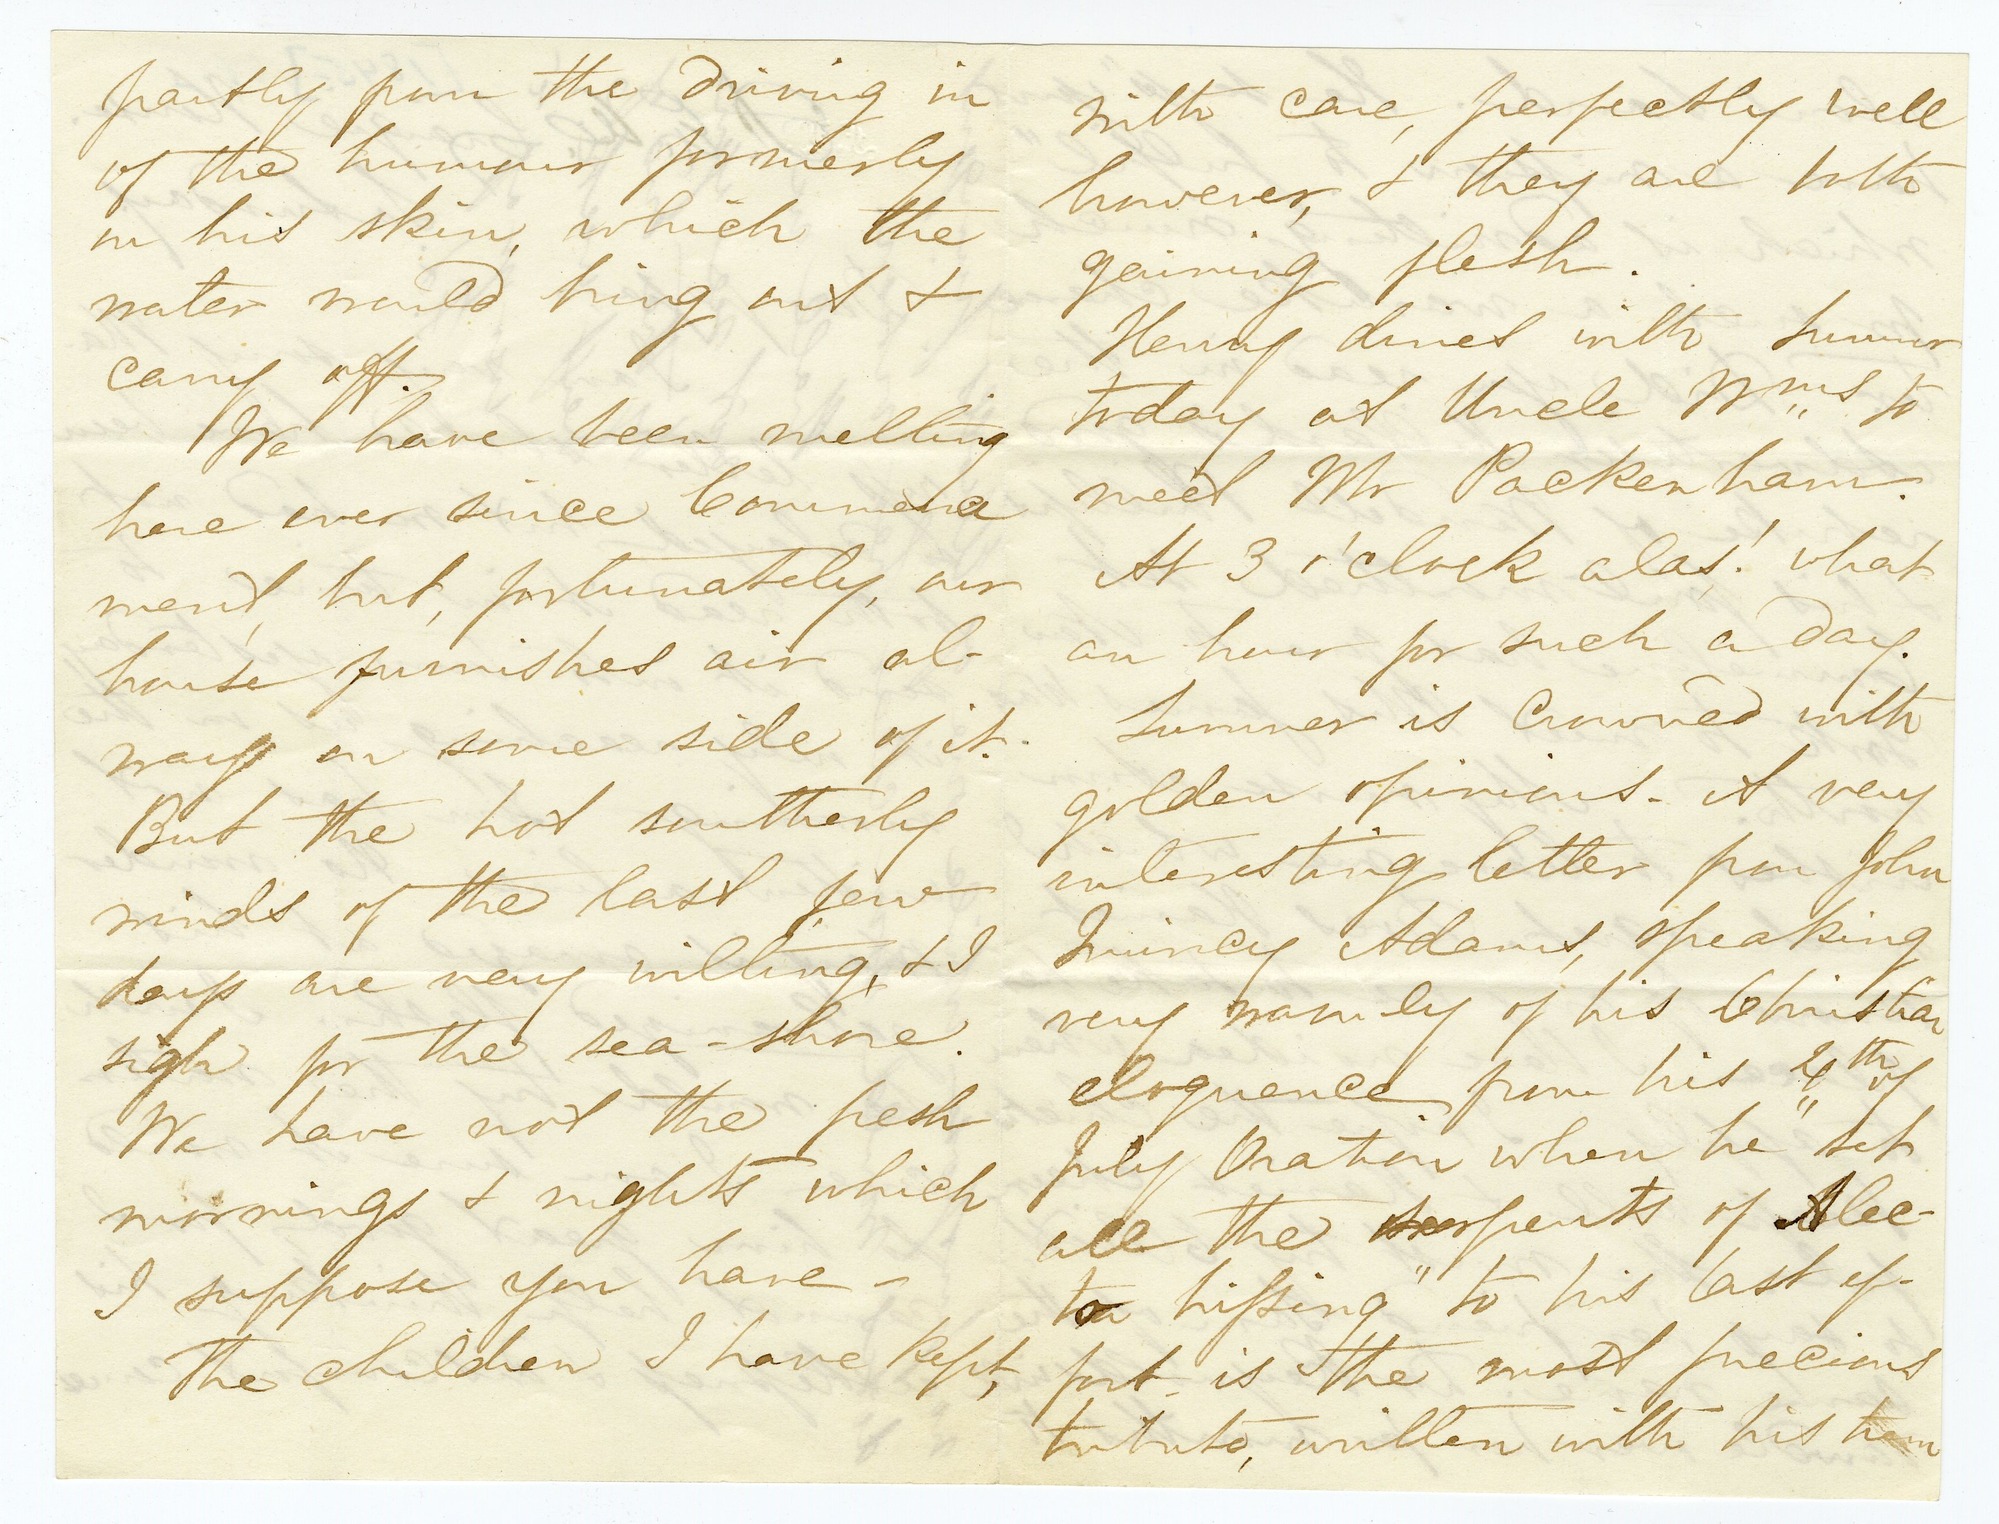 partly from the driving in
of the humour formerly
in his skin, which the
water would bring out &
carry off.
We have been melting
here ever since Commence
ment, but, fortunately, our
house furnishes air al-
ways on some side of it.
But the hot southerly
winds of the last few
days are very wilting, & I
sigh for the sea-shore.
We have not the fresh
mornings & nights which
I suppose you have -
The children I have kept,
with care, perfectly well
however, & they are both
gaining flesh.
Henry dines with Sumner
today at Uncle Wms to
meet Mr Packenham.
At 3 o'clock alas! what
an hour for such a day.
Sumner is crowned with
golden opinions. A very
interesting letter from John
Quincy Adams, speaking
very warmly of his Christian
eloquence from his 4th of
July Oration when he "set
all the serpents of Alec-
to hissing" to his last ef-
fort is the most precious
tribute, written with his